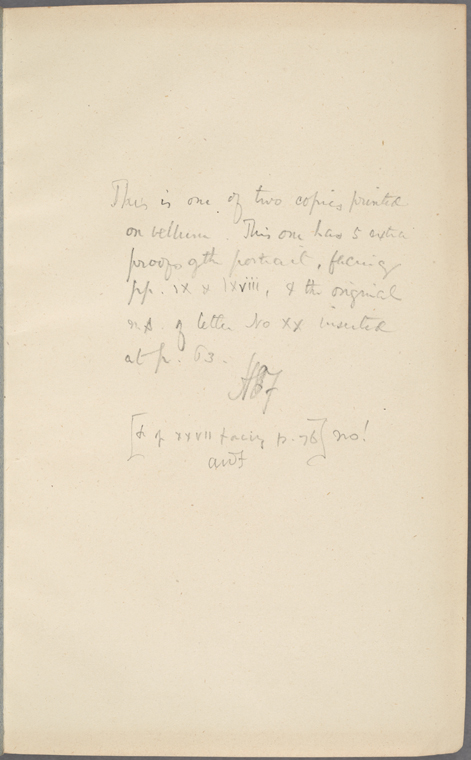 This is one of two copies printed
on vellum. This one has 5 extra
proofs of the portrait, facing
pp. ix & lxviii, & the original
MS. of letter No XX inserted
at p. 63.
HBF
[& of xxvii facing p. 76] no!